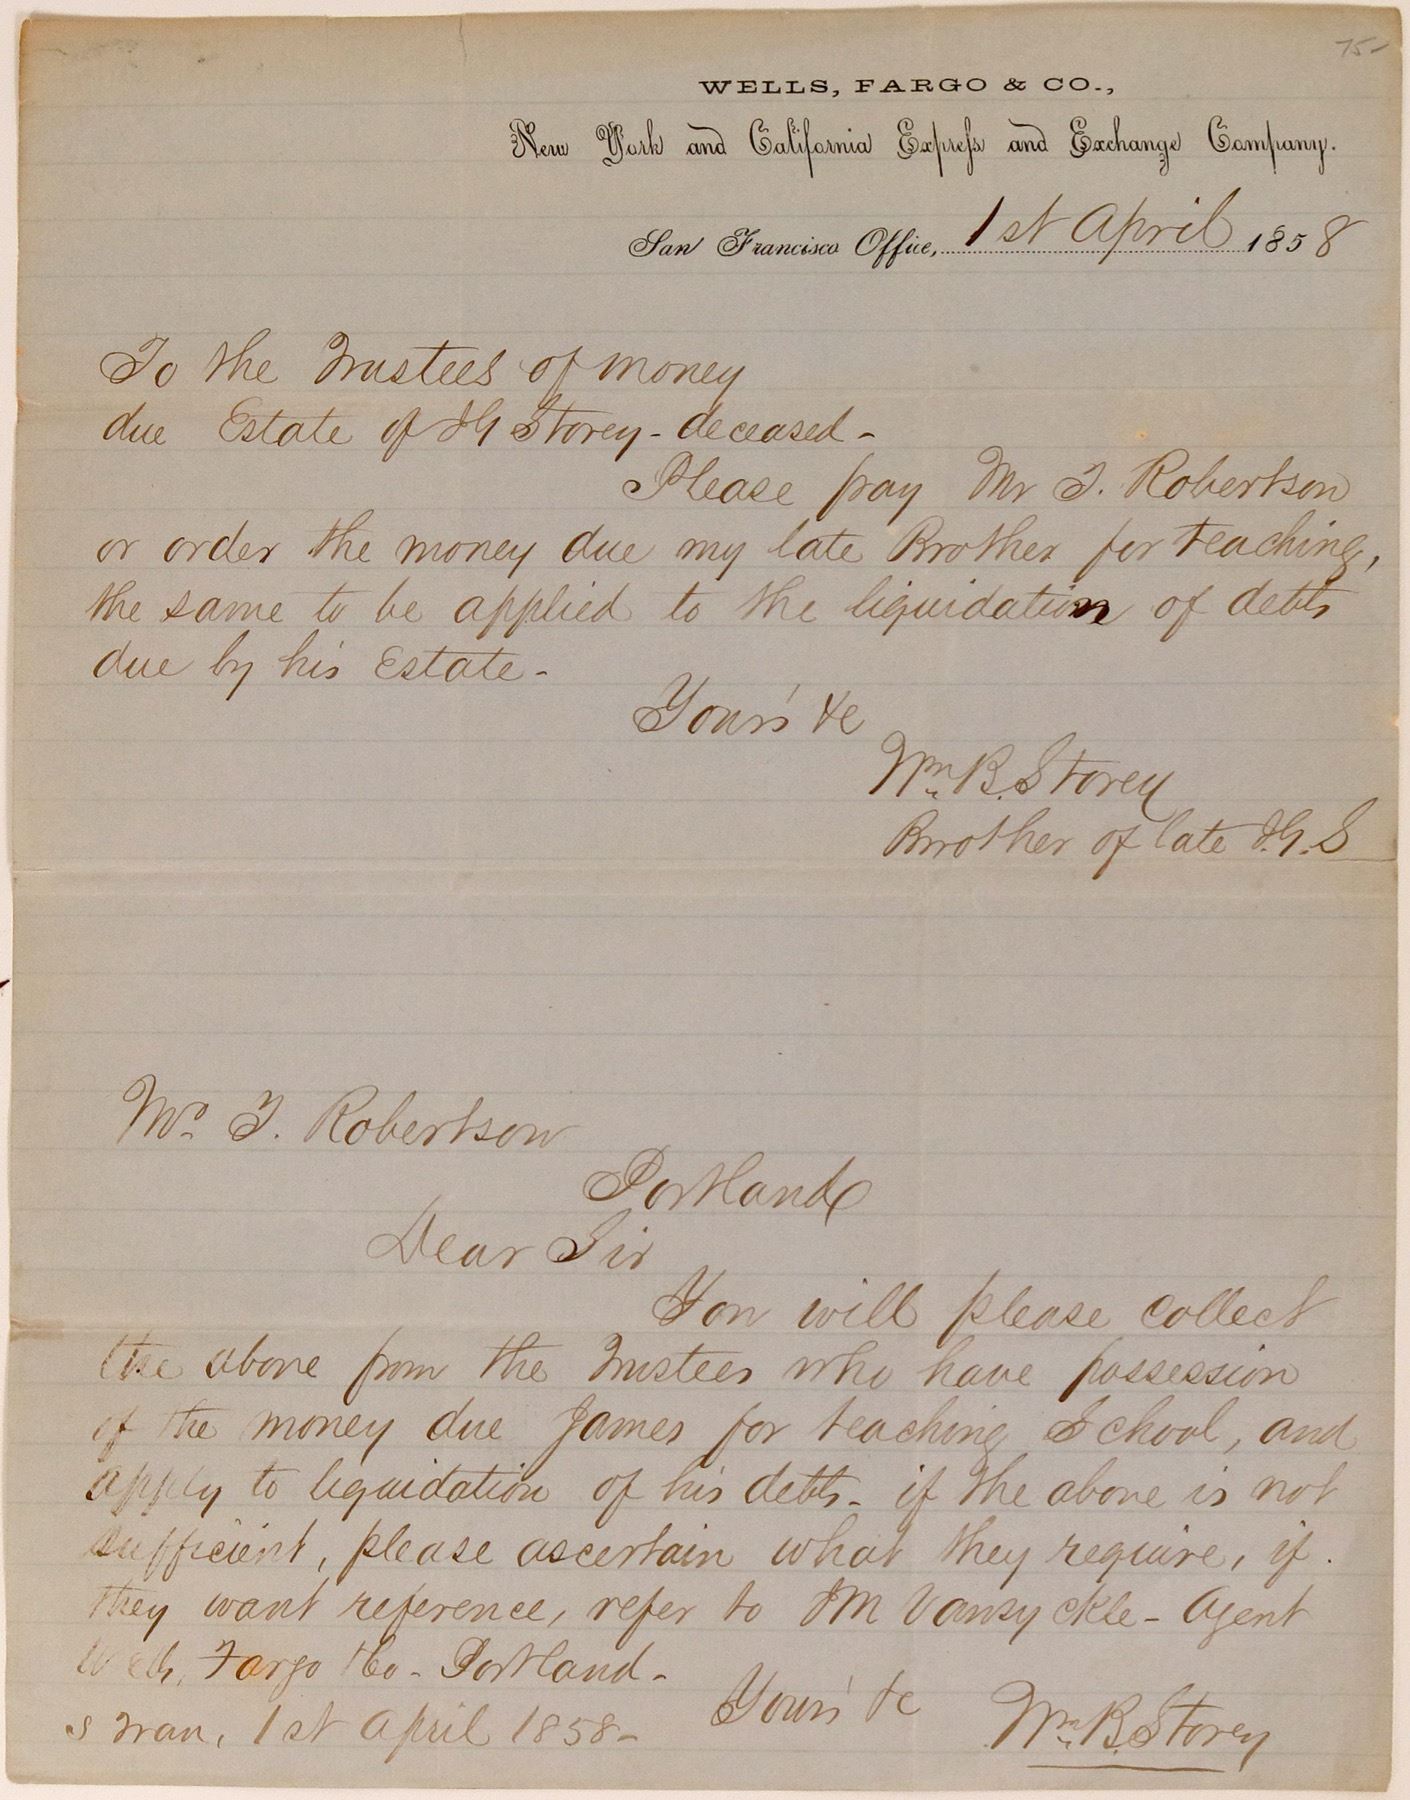 75-
WELLS, FARGO & CO.,
New York and California Express and Exchange Company.
San Francisco Office, 1st April 1858
To the Trustees of money
due Estate of JG Storey - deceased -
Please pay Mr T. Robertson
or order the money due my late Brother for teaching,
the same to be applied to the liquidation of debts
due by his Estate -
Your's &c
Wm. B. Storey
Brother of late J.G.S
Mr. T. Robertson
Portland
Dear Sir
You will please collect
the above from the Trustees who have possession
of the money due James for teaching School, and
apply to liquidation of his debts - if the above is not
sufficient, please ascertain what they require, if
they want reference, refer to JM Vansyckle - Agent
Wells, Fargo &Co - Portland -
S Fran, 1st April 1858 -
Your's &c
Wm. B. Storey